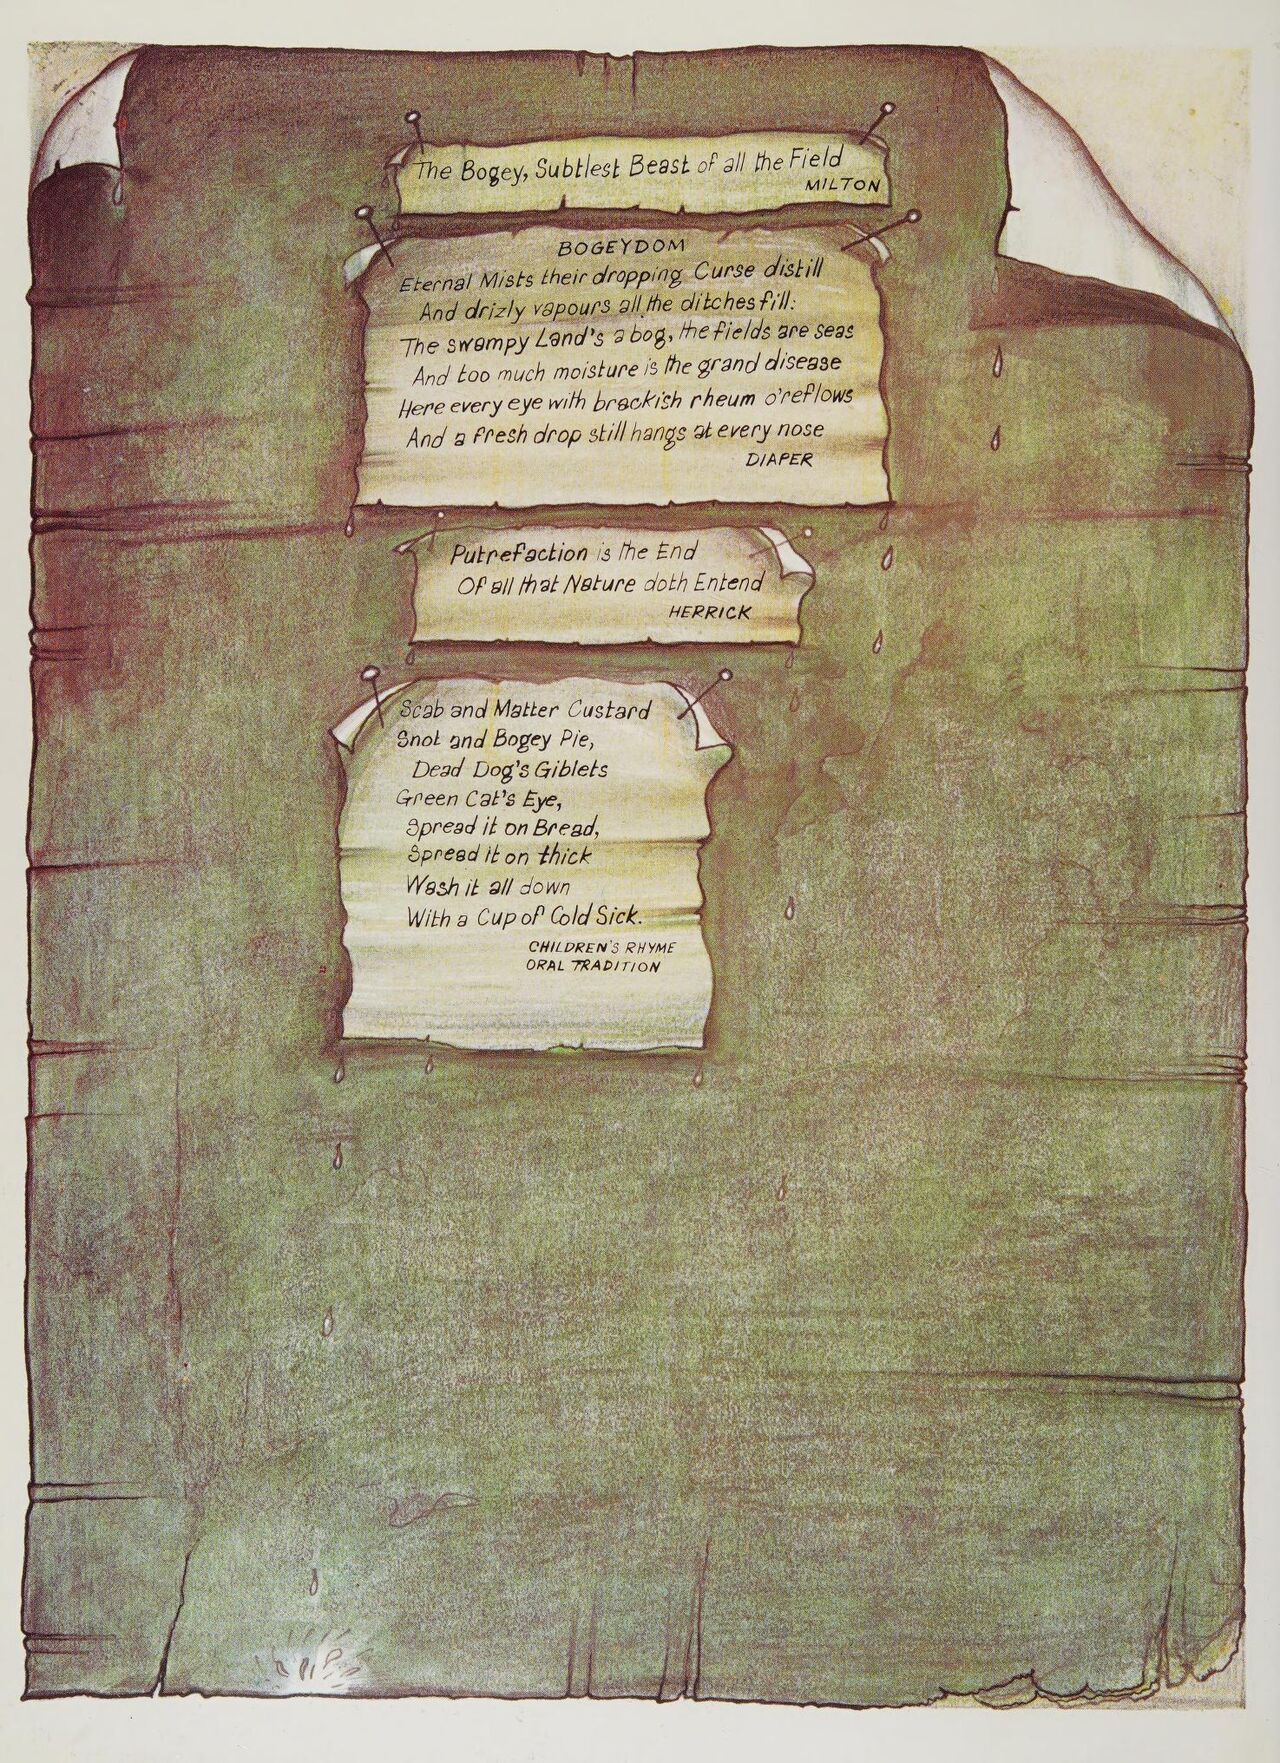 The Bogey, Subtlest Beast of all the Field
MILTON
BOGEYDOM
Eternal Mists their dropping Curse distill
And drizly vapours all the ditches fill:
The swampy Land's a bog, the fields are seas
And too much moisture is the grand disease
Here every eye with brackish rheum o'reflows
And a fresh drop still hangs at every nose
DIAPER
Putrefaction is the End
Of all that Nature doth Entend
HERRICK
Scab and Matter Custard
Snot and Bogey Pie,
Dead Dog's Giblets
Green Cat's Eye,
Spread it on Bread,
Spread it on thick
Wash it all down
With a Cup of Cold Sick.
CHILDREN'S RHYME
ORAL TRADITION